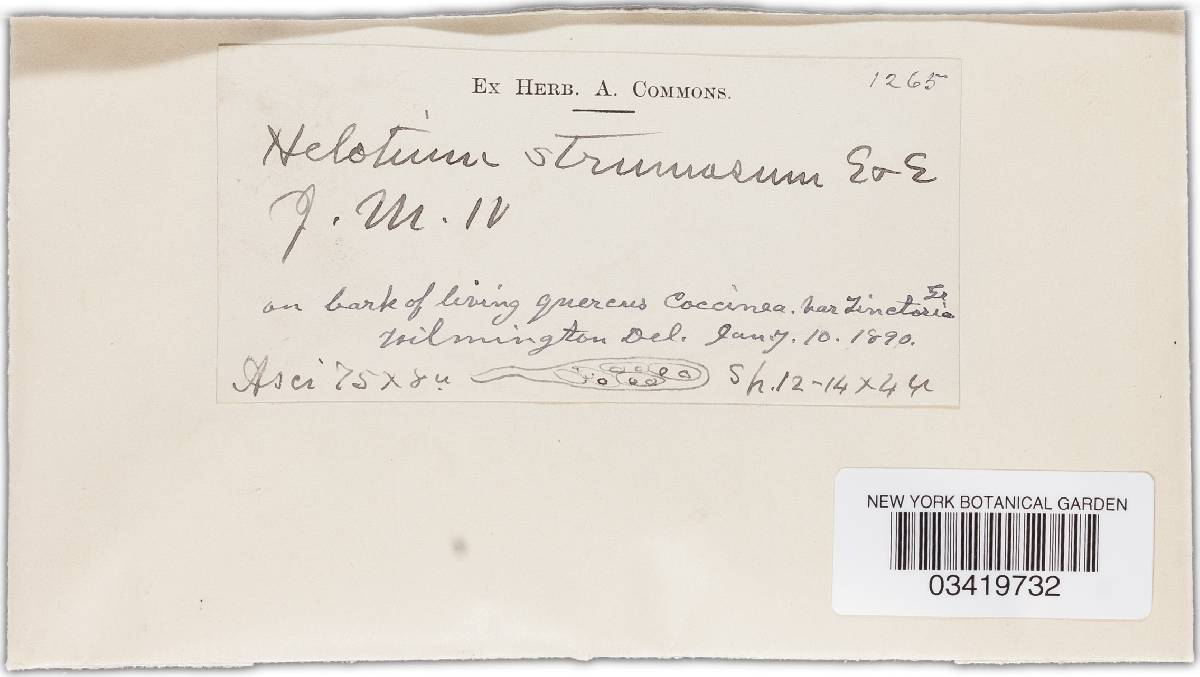 Ex Herb. A. Commons.
1265
Helotium strumosum E & E
J. M. IV
on bark of living quercus Coccinea. var Tinctoria Gr
Wilmington Del. Jany. 10. 1890.
Asci 75 x 8 u
Sp. 12-14 x 4 u
NEW YORK BOTANICAL GARDEN
03419732